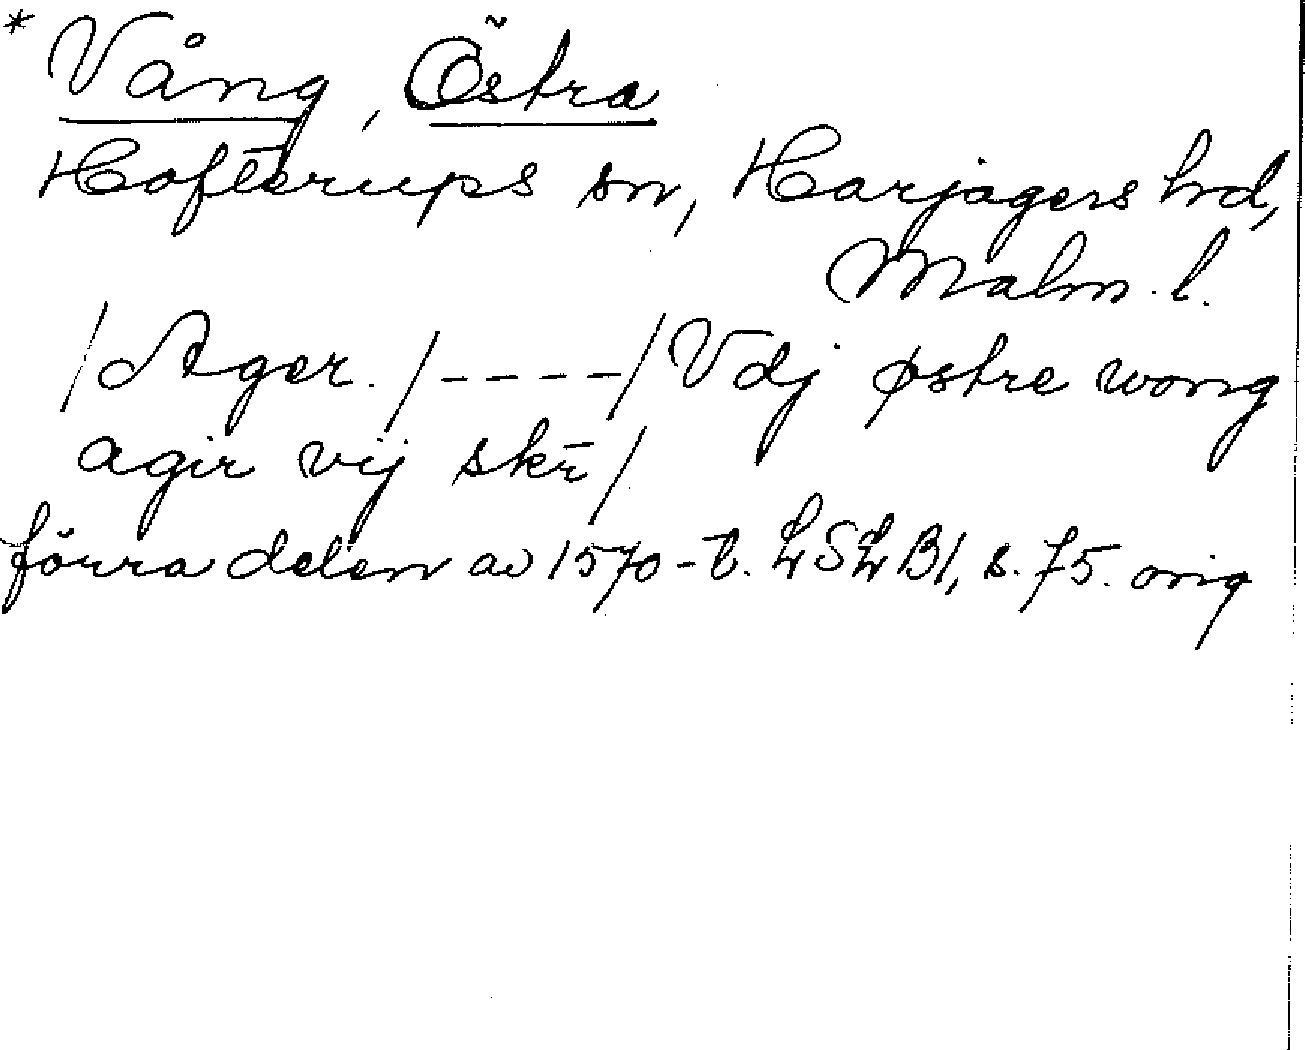 * Vång, Östra
Hofterups sn, Harjagers hd,
Malm. l.
/Ager./----/Vdj østre wong
agir vij skr̄/
förra delen av 1570-t. LSLB1, s. 75. orig